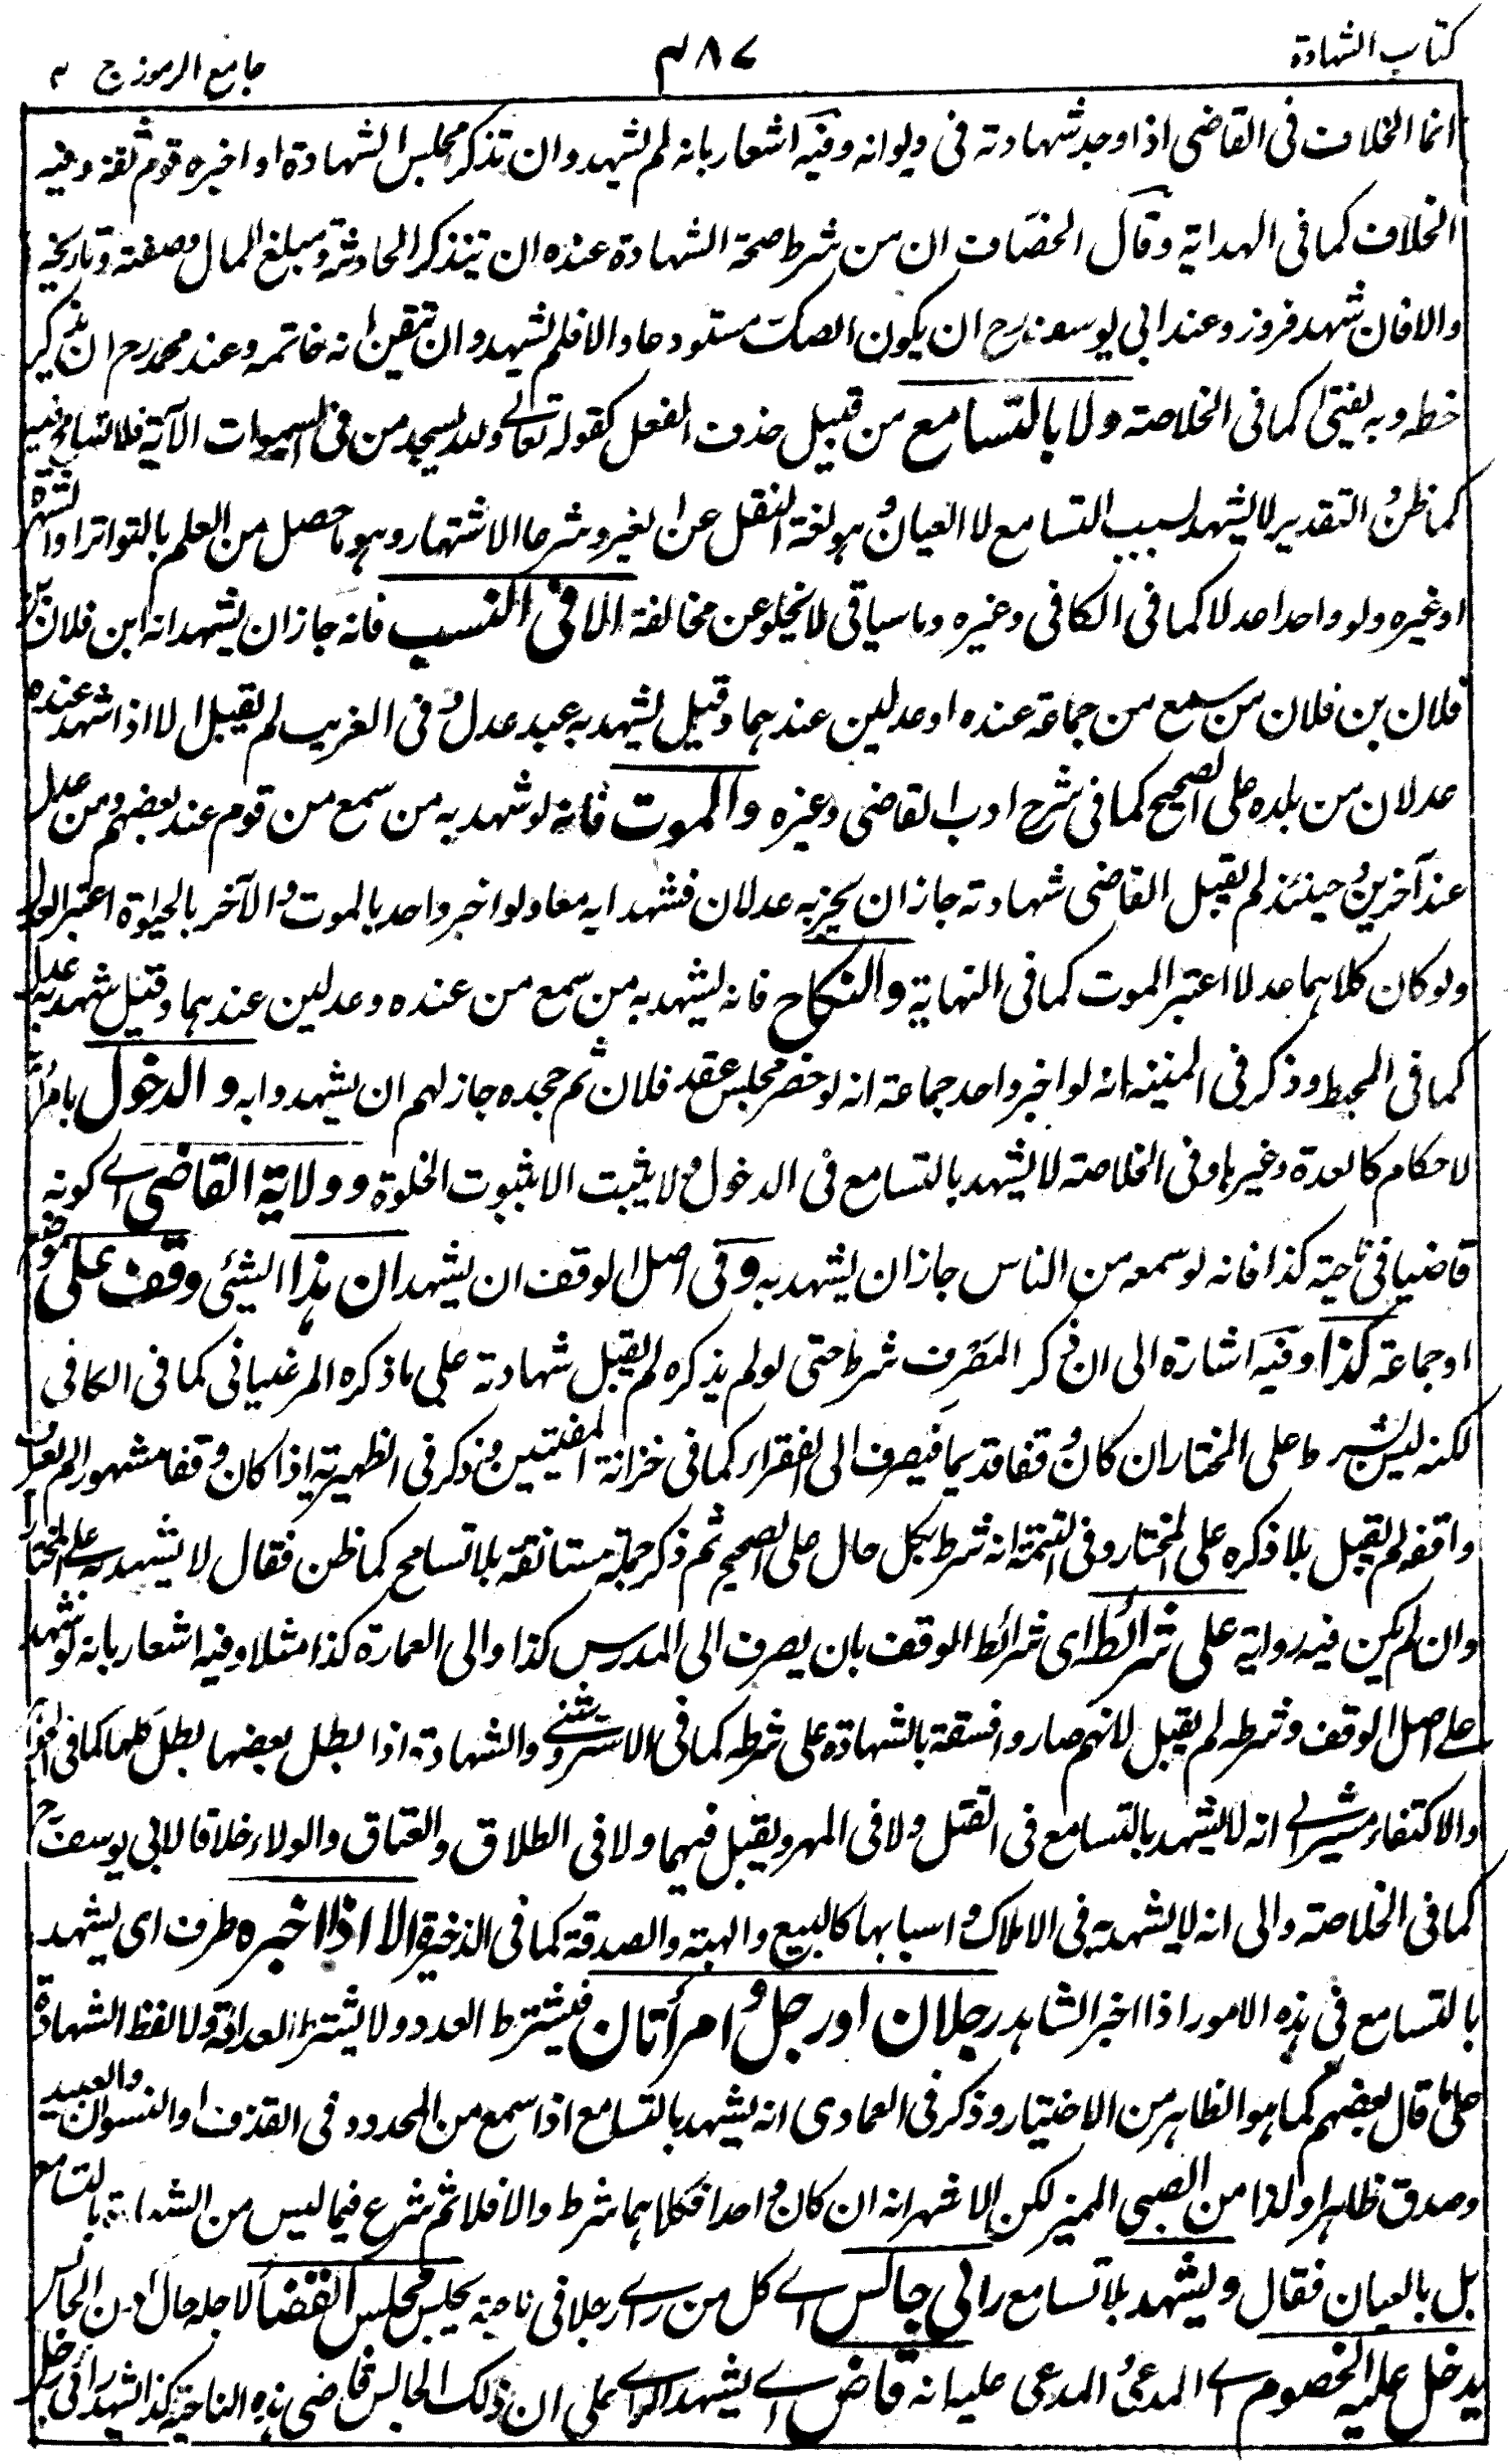 كتاب الشهادة
٤٨٧
جامع الرموز ج ٢
انما الخلاف فى القاضى اذا وجد شهادته فى ديوانه وفيه اشعار بانه لم يشهد وان تذكر مجلس الشهادة او اخبره قوم ثقة وفيه
الخلاف كما فى الهداية وقال الخصاف ان من شرط صحة الشهادة عنده ان يتذكر الحادثة ومبلغ المال وصفته وتاريخه
والا فان شهد فزور وعند ابى يوسف رح ان يكون الصك مستودعا والا فلم يشهد وان تيقن انه خاتمه وعند محمد رح ان يذكر
خطه وبه يفتى كما فى الخلاصة ولا بالتسامع من قبيل حذف الفعل كقوله تعالى ولله يسجد من فى السموات الآية فلا تسامح فيه
كما ظن والتقدير لا يشهد بسبب التسامع لا العيان وهو لغة النقل عن الغير وشرعا الاشتهار وهو ما حصل من العلم بالتواتر او الشهرة
او غيره ولو واحدا عدلا كما فى الكافى وغيره وما سياتى لا يخلو عن مخالفة الا فى النسب فانه جاز ان يشهد انه ابن فلان
فلان بن فلان من سمع من جماعة عنده او عدلين عندهما وقيل يشهد به عبد عدل وفى الغريب لم يقبل الا اذا شهد عنده
عدلان من بلده على الصحيح كما فى شرح ادب القاضى وغيره والموت فانه لو شهد به من سمع من قوم عند بعضهم ومن عدل
عند آخرين وحينئذ لم يقبل القاضى شهادته جاز ان يخبر به عدلان فشهدا به معا ولو اخبر واحد بالموت والآخر بالحيوة اعتبر العدل
ولو كان كلاهما عدلا اعتبر الموت كما فى النهاية والنكاح فانه يشهد به من سمع من عنده وعدلين عندهما وقيل شهد به عدل
كما فى المحيط وذكر فى المنية انه لو اخبر واحد جماعة انه لو حضر مجلس عقد فلان ثم جحده جاز لهم ان يشهدوا به والدخول بامرأته
لاحكام كالعدة وغيرها وفى الخلاصة لا يشهد بالتسامع فى الدخول ولا يثبت الا بثبوت الخلوة وولاية القاضى اى كونه
قاضيا فى ناحية كذا فانه لو سمعه من الناس جاز ان يشهد به وفى اصل الوقف ان يشهد ان هذا الشئى وقف على موضع
او جماعة كذا وفيه اشارة الى ان ذكر المصرف شرط حتى لو لم يذكره لم يقبل شهادته على ما ذكره المرغينانى كما فى الكافى
لكنه ليس بشرط على المختار ان كان وقفا قديما فيصرف الى الفقراء كما فى خزانة المفتيين وذكر فى الظهيرية اذا كان وقفا مشهورا لم يعرف
واقفه لم يقبل بلا ذكره على المختار وفى التتمة انه شرط بكل حال على الصحيح ثم ذكر جملة مستانفة بلا تسامح كما ظن فقال لا يشهد به على المختار
وان لم يكن فيه رواية على شرائطه اى شرائط الوقف بان يصرف الى المدرس كذا والى العمارة كذا مثلا وفيه اشعار بانه لو شهد
على اصل الوقف وشرطه لم يقبل لانهم صاروا فسقة بالشهادة على شرطه كما فى الاستروشنى والشهادة اذا بطل بعضها بطل كلها كما فى
والاكتفاء مشير الى انه لا يشهد بالتسامع فى القتل ولا فى المهر ويقبل فيهما ولا فى الطلاق والعتاق والولاء خلافا لابى يوسف رح
كما فى الخلاصة والى انه لا يشهد به فى الاملاك واسبابها كالبيع والهبة والصدقة كما فى الذخيرة الا اذا اخبره ظرف اى يشهد
بالتسامع فى هذه الامور اذا اخبر الشاهد رجلان او رجل وامرأتان فيشترط العدد ولا يشترط العدالة ولا لفظ الشهادة
على ما قال بعضهم كما هو الظاهر من الاختيار وذكر فى العمادى انه يشهد بالتسامع اذا سمع من المحدود فى القذف او النسوان والعبيد
وصدق ظاهرا ولذا من الصبى المميز لكن الاشهر انه ان كان واحدا فكلاهما شرط والا فلا ثم شرع فيما ليس من الشهادة بالتسامع
بل بالعيان فقال ويشهد بلا تسامع رائى جالس اى كل من راى رجلا فى ناحية يجلس مجلس القضا لاجله حال الجالس
يدخل عليه الخصوم اى المدعى والمدعى عليه انه قاض اى يشهد الرائى على ان ذلك الجالس قاضى هذه الناحية كذا يشهد رائى رجل